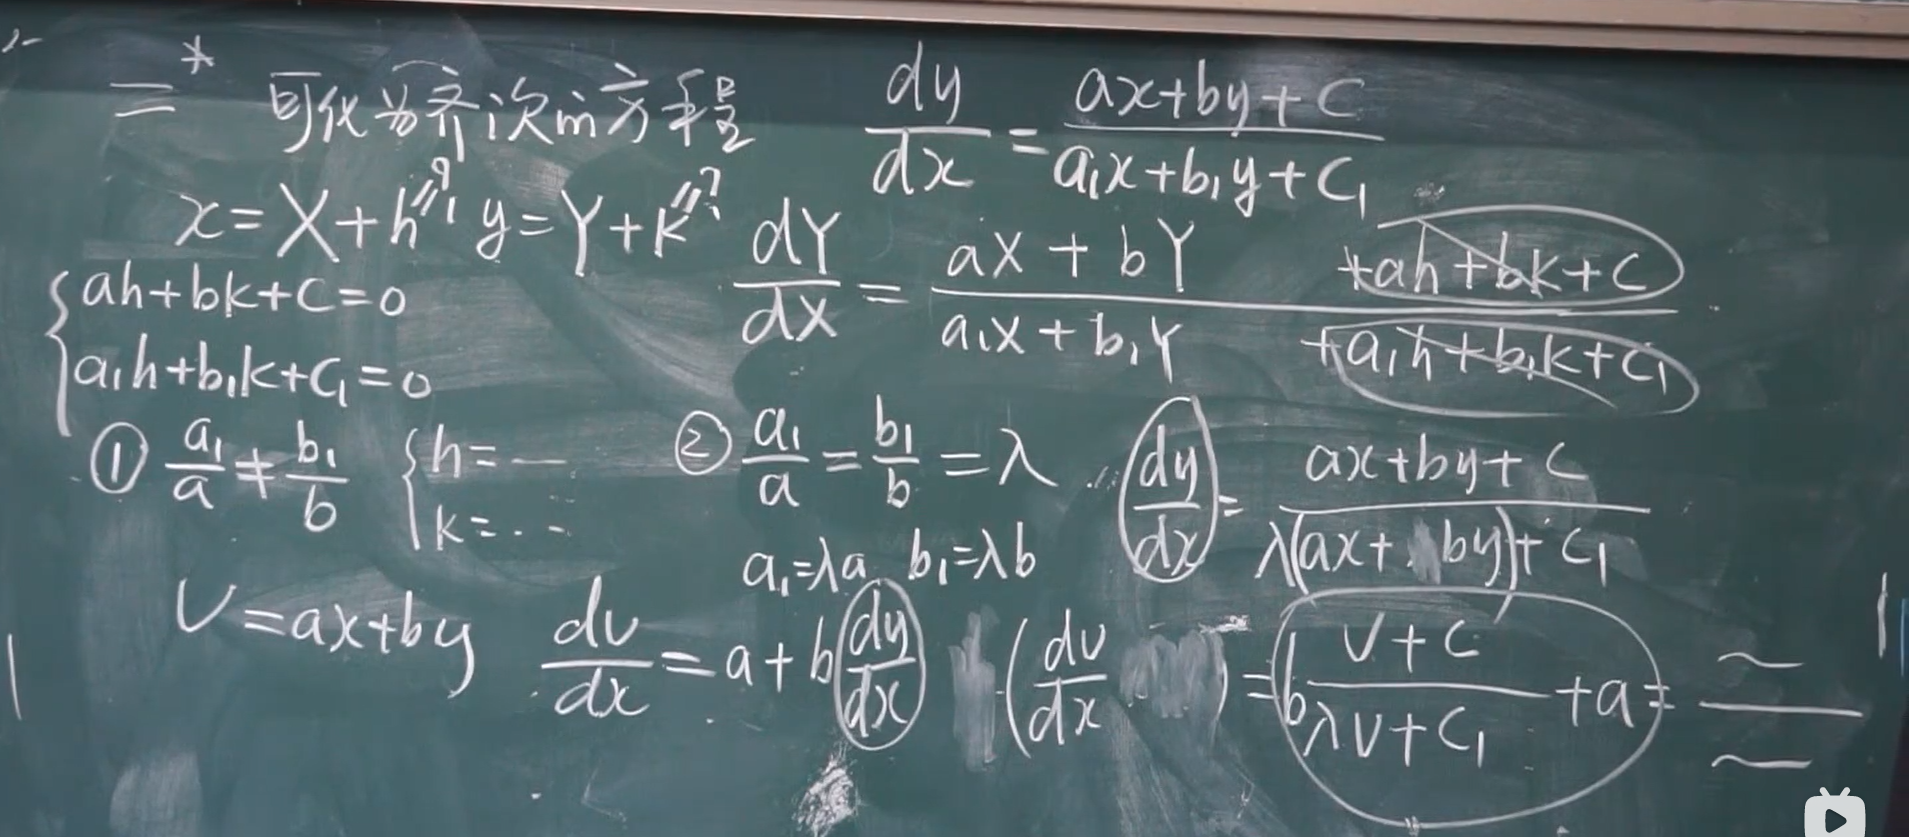 二* 可化为齐次的方程 dy/dx = (ax+by+C)/(a₁x+b₁y+C₁)
x=X+h?, y=Y+k? dY/dX = (aX+bY +ah+bk+C)/(a₁X+b₁Y +a₁h+b₁k+C₁)
{ah+bk+C=0
a₁h+b₁k+C₁=0
① a₁/a ≠ b₁/b {h=— k=--- ② a₁/a = b₁/b = λ dy/dx = (ax+by+C)/(λ(ax+by)+C₁)
a₁=λa b₁=λb
V=ax+by dv/dx = a+b dy/dx (dv/dx ) = b (V+C)/(λV+C₁) +a = ~/~